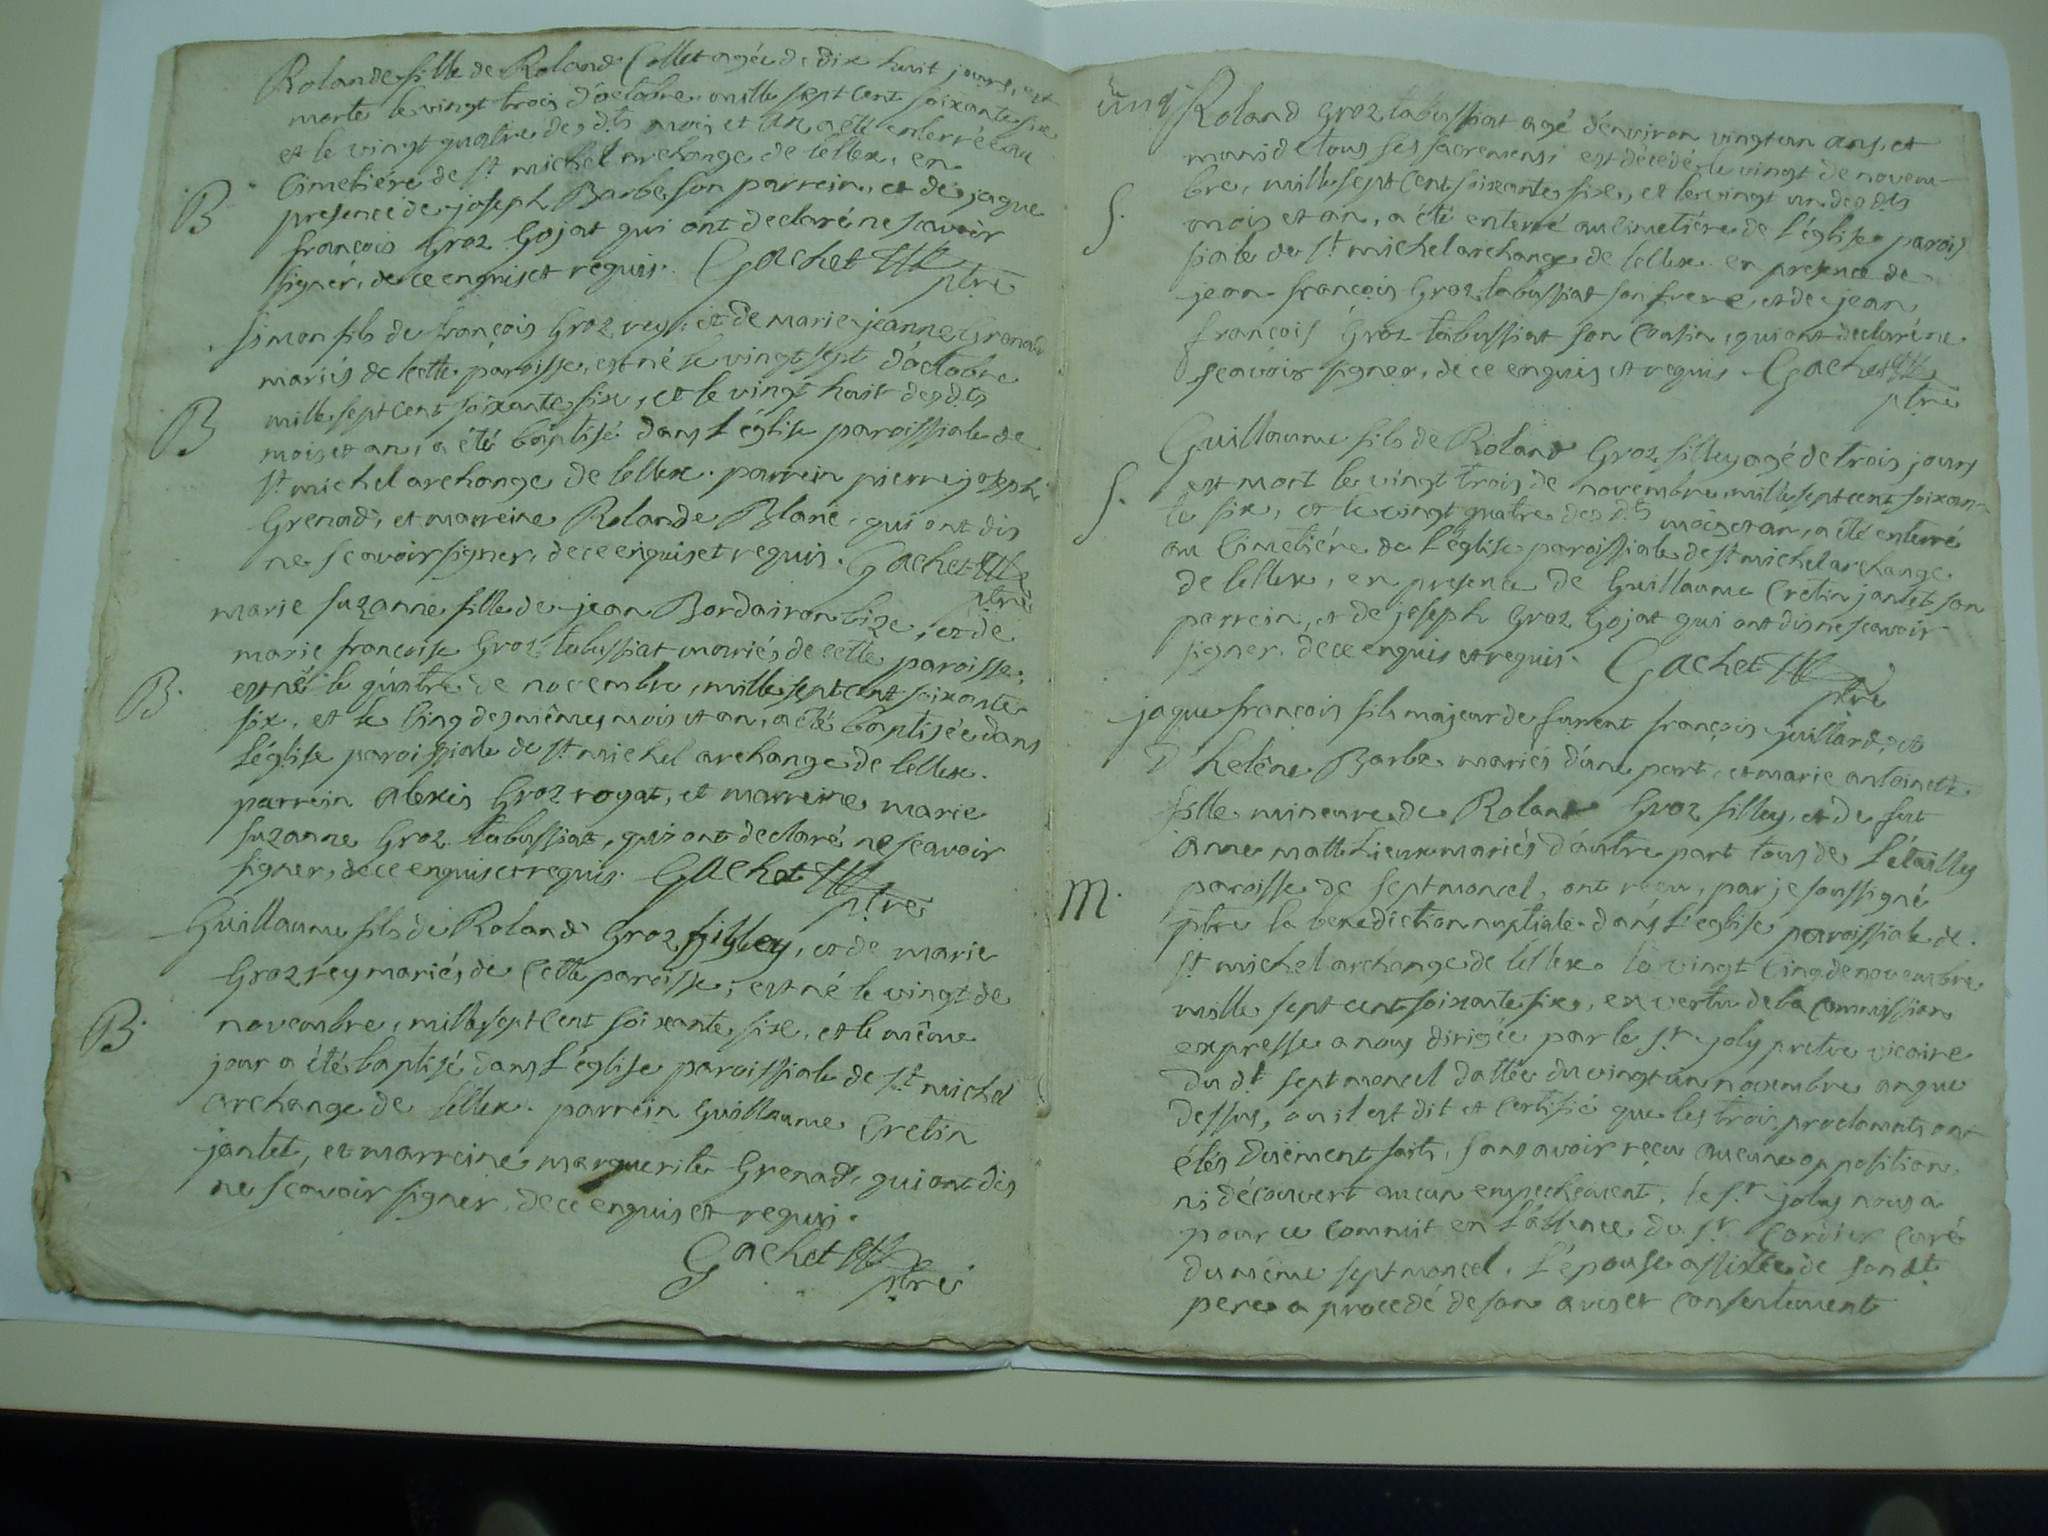 Rolande fille de Roland Collet agée de dix huit jours, est
morte le vingt trois d'octobre mille sept cent soixante six
et le vingt quatre des dts mois et an a été enterrée au
Cimetiére de st michel archange de lellex, en
B
presence de joseph Barbe son parrein, et de jaque
françois Groz Gojat qui ont declaré ne scavoir
signer, de ce enquis et requis. Gachet
ptre
simon fils de françois Groz rey, et de marie jeanne Grenard
mariés de cette paroisse, est né le vingt sept d'octobre
mille sept cent soixante six, et le vingt huit des dts
B
mois et an, a été baptisé dans l'église paroissiale de
st michel archange de lellex. parrein pierre joseph
Grenad, et marreine Rolande Blanc, qui ont dis
ne scavoir signer, de ce enquis et requis. Gachet
ptre
marie suzanne fille de jean Bordairon bize, et de
marie francoise Groz tabussiat mariés de cette paroisse,
B.
est né le quatre de novembre, mille sept cent soixante
six, et le cinq des mêmes mois et an, a été baptisée dans
l'église paroissiale de st michel archange de lellex.
parrein alexis Groz royat, et marreine marie
suzanne Groz tabussiat, qui ont declaré ne scavoir
signer, de ce enquis et requis. Gachet
ptre
Guillaume fils de Roland Groz filley, et de marie
Groz rey mariés de cette paroisse, est né le vingt de
B.
novembre, mille sept cent soixante six, et le même
jour a été baptisé dans l'église paroissiale de st michel
archange de lellex. parrein Guillaume Cretin
jantet, et marreine marguerite Grenad, qui ont dis
ne scavoir signer, de ce enquis et requis.
Gachet
ptre
Roland Groz tabussiat agé d'environ vingt un ans, et
muni de tous ses sacremens, est décédé le vingt de novem-
S.
bre, mille sept cent soixante six, et le vingt un des dts
mois et an, a été enterré au cimetiére de l'église parois
siale de st michel archange de lellex en presence de
jean françois Groz tabussiat son frere, et de jean
françois Groz tabussiat son cousin, qui ont declaré ne
scavoir signer, de ce enquis et requis. Gachet
ptre
Guillaume fils de Roland Groz filley agé de trois jours
est mort le vingt trois de novembre, mille sept cent soixan-
S.
te six, et le vingt quatre des dts mois et an, a été enterré
au cimetiére de l'église paroissiale de st michel archange
de lellex, en presence de Guillaume Cretin jantet son
parrein, et de joseph Groz Gojat qui ont dis ne scavoir
signer, de ce enquis et requis. Gachet
ptre
jaque françois fils majeur de furent françois juillard, et
d'helène Barbe mariés d'une part, et marie antoinette
fille mineure de Roland Groz filley, et de fut
anne matthieux mariés d'autre part tous de l'étailley
M.
paroisse de septmoncel, ont reçu, par je soussigné
ptre la benediction nuptiale dans l'église paroissiale de
st michel archange de lellex le vingt cinq de novembre
mille sept cent soixante six, en vertu de la commission
expresse a nous dirigée par le sr joly pretre vicaire
du dt septmoncel dattée du vingt un novembre an que
dessus, ou il est dit et certifié que les trois proclamats ont
étés düement faits, sans avoir reçu aucune opposition,
ni découvert aucun empechement. le sr joly nous a
pour ce commit en l'absence du sr Cordier curé
du même septmoncel, l'épouse assistée de son dt
pere a procedé de son avis et consentement